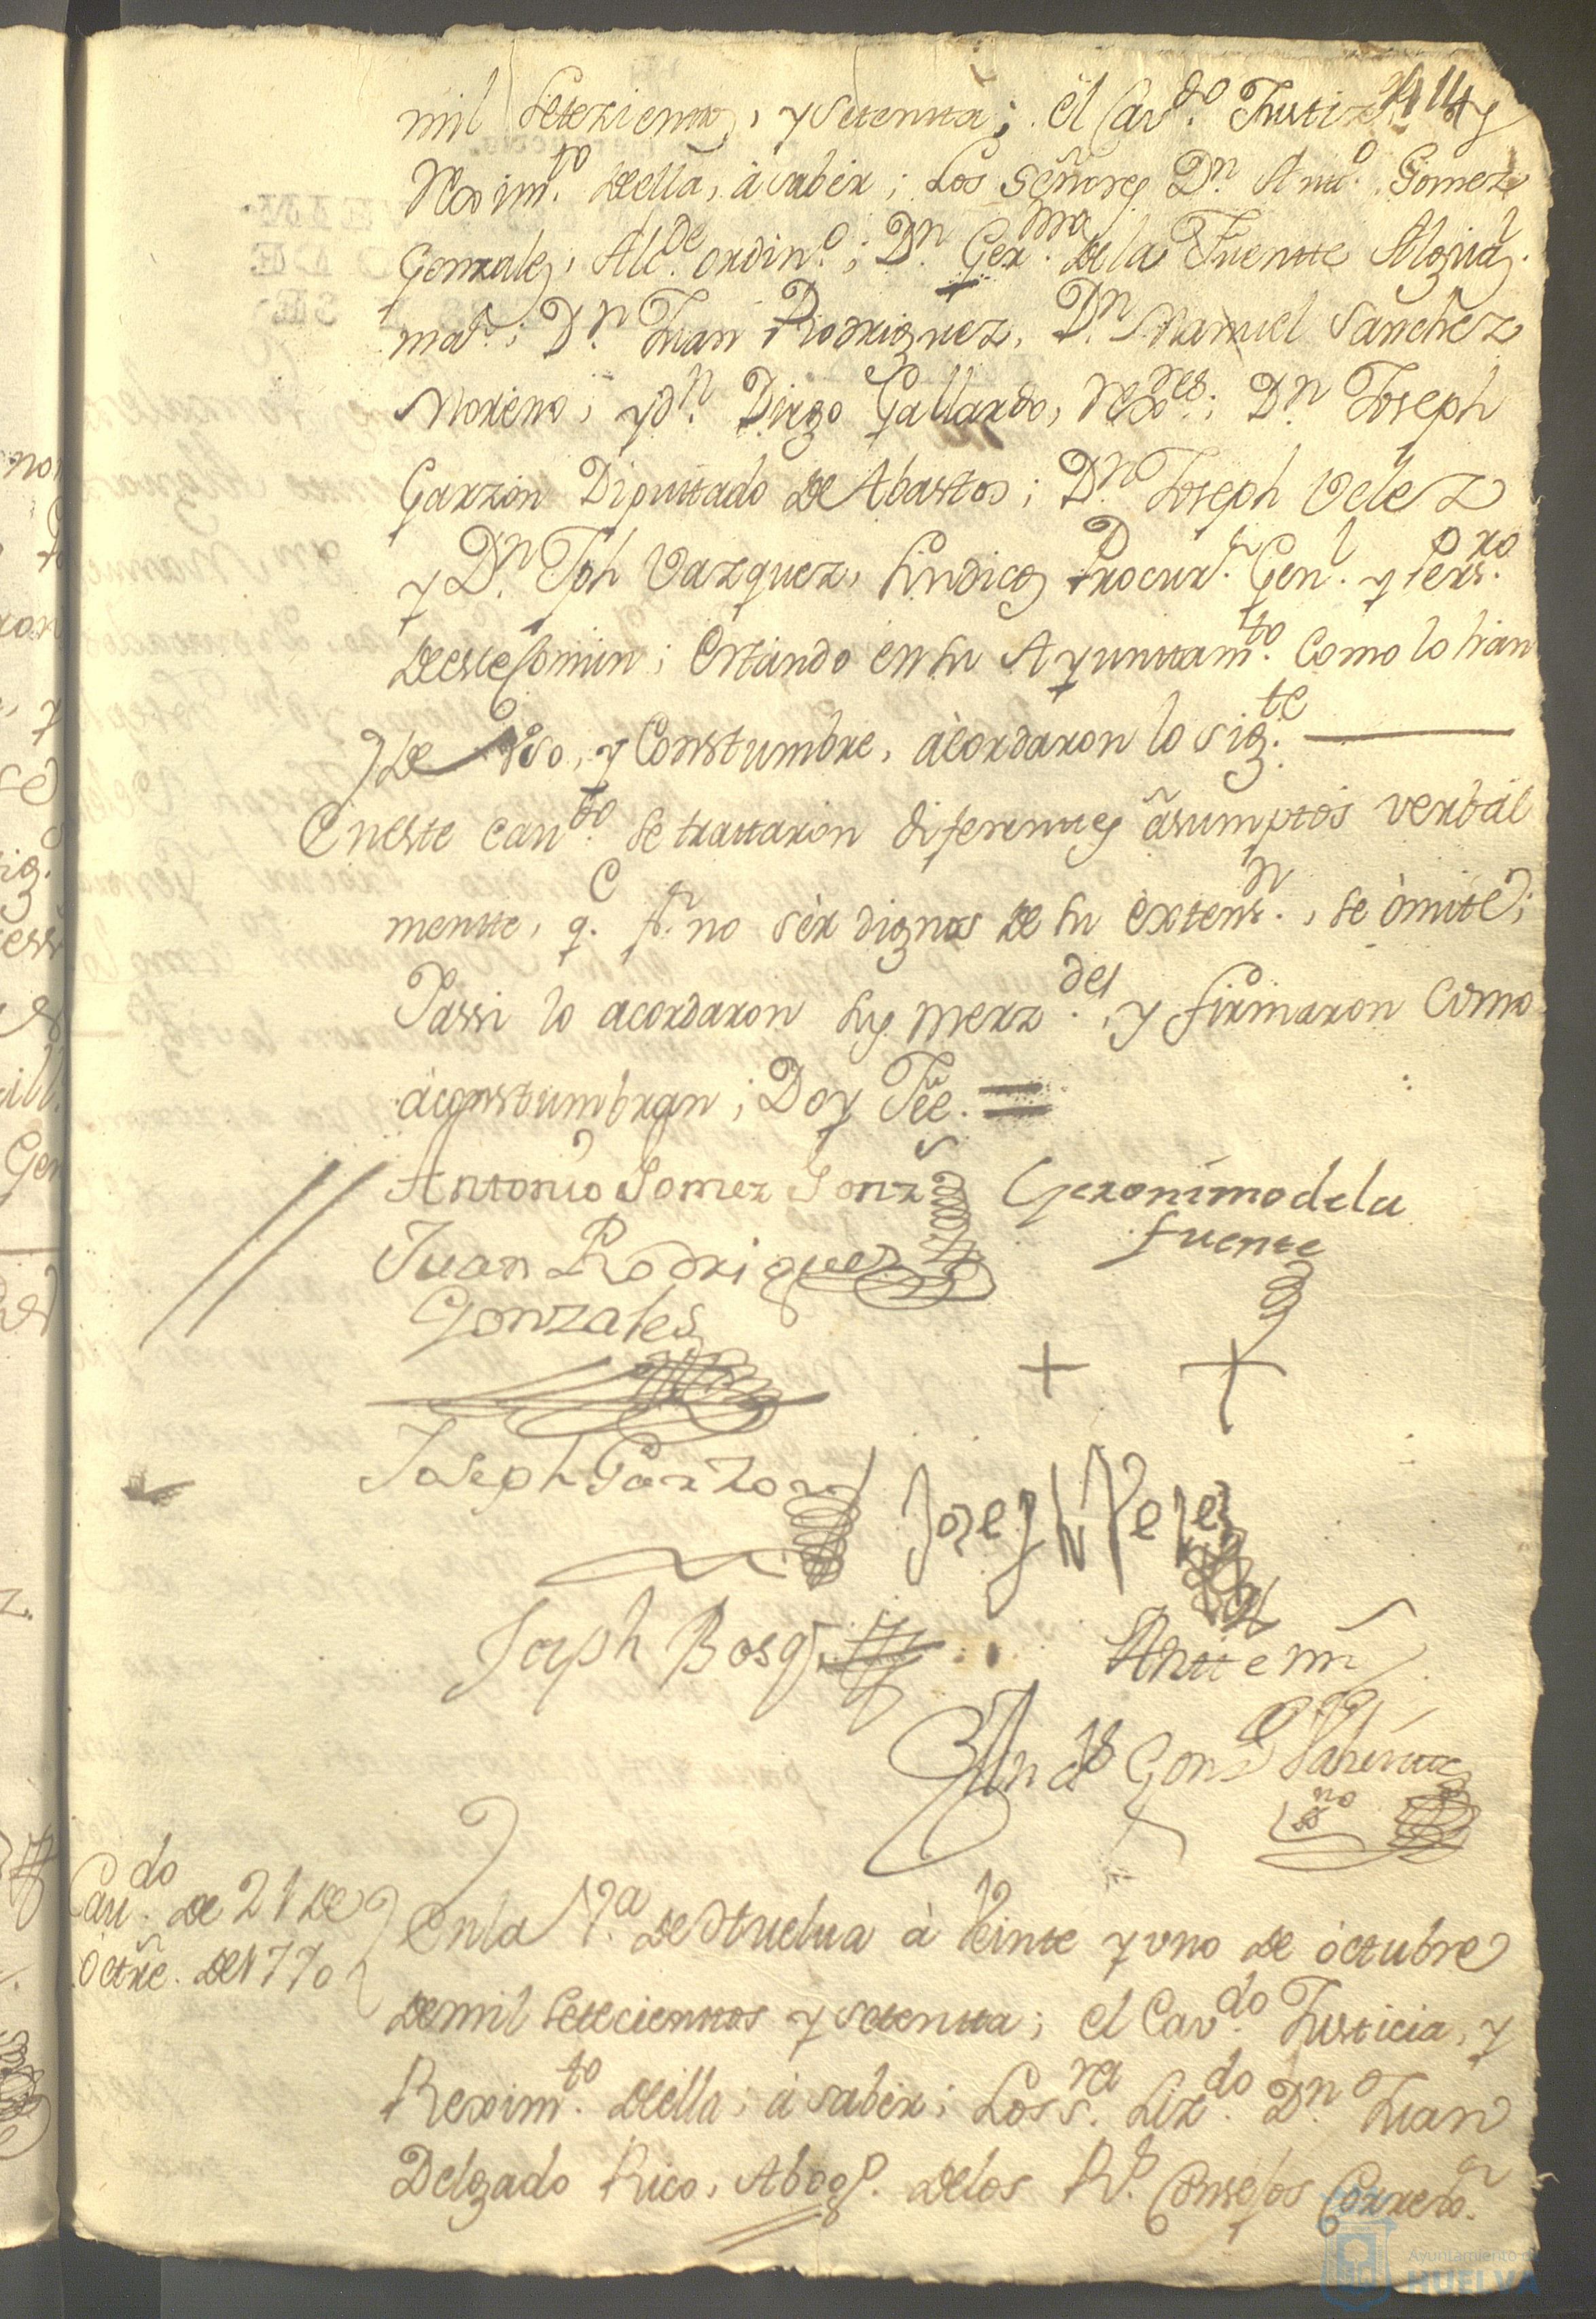 mil setezientos, y setentta; el Cav.do Justizia, y
Rexim.to della, à saber; Los Señores D.n Antt.o Gomez
Gonzalez, Alc.de ordin.o; D.n Ger.mo de la Fuentte Alguaz.l
ma.r; D.n Juan Rodriguez, D.n Manuel Sanchez
Moreno, y d.n Diego Gallardo, Rex.res; D.n Joseph
Garzon Diputtado de Abasttos; D.n Joseph Velez
y D.n Jph Vazquez, Sindicos Procur.r Gen.l y Pers.ro
de este Comun; Estando en su Ayunttam.to Como lo han
de vso, y Constumbre, acordaron lo sig.te
En este cav.do se trattaron diferenttes asumptos verbal
mentte, q.e p.r no sèr dignos de su extens.n, se òmite;
Y assi lo acordaron sus merz.des, y firmaron Como
acostumbran; Doy Fee. =
Antonio Gomez Gonz.s Geronimo de la
fuente
Juan Rodriguez
Gonzales
+ +
Joseph Garzon Joseph Velez
Joseph Basq.z
Antte mi
And.s Gonz
ss.no
Cav.do de 21 de
Octre. de 1770
En la V.a de Huelua à veinte y vno de òctubre
de mil settecienttos y setentta; el Cav.do Justicia, y
Rexim.to della; à saber; Los s.res Liz.do D.n Juan
Delgado Rico, Abog.o de los R.s Consejos Correx.r
Ayuntamiento de
HUELVA